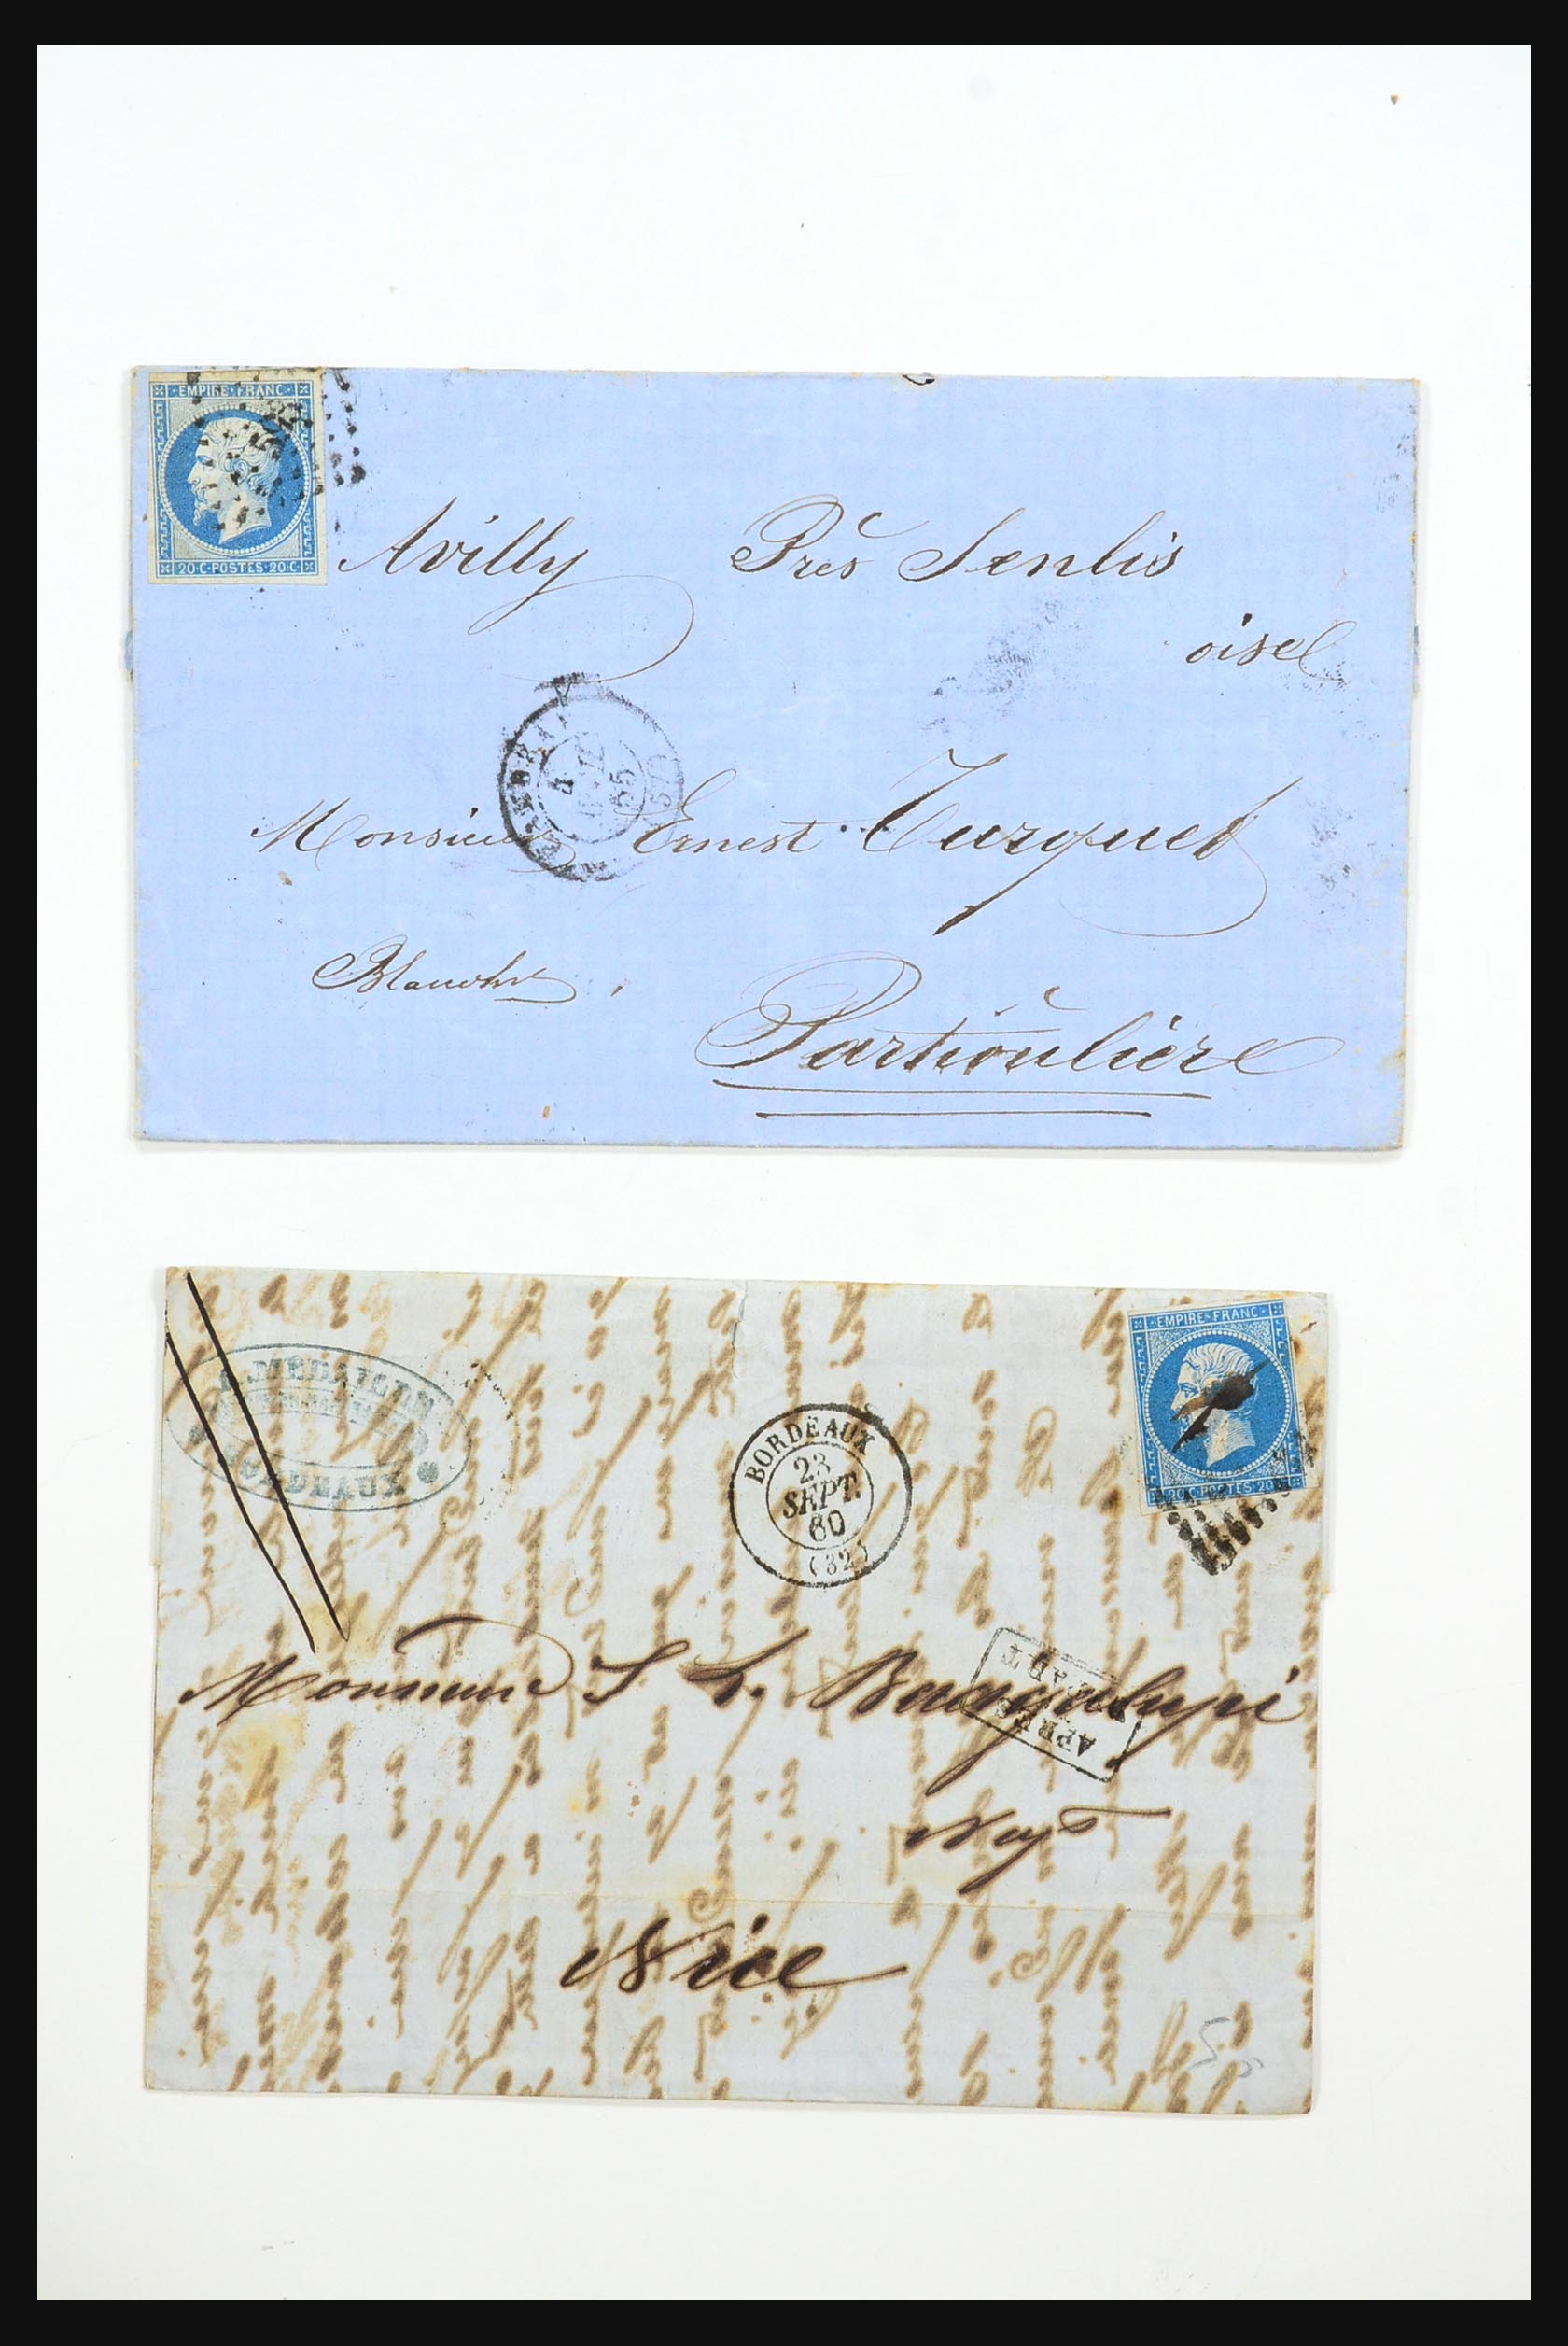 EMPIRE FRANC
20 C POSTES 20 C
Avilly Près Senlis
oise
Monsieur Ernest Turquet
Particulière
A. MÉDAILLE
BORDEAUX
BORDEAUX
23
SEPT.
60
(32)
EMPIRE FRANC
20 C POSTES 20 C
APRÈS
LE DÉPART
Monsieur S. L.
Negt
Nice